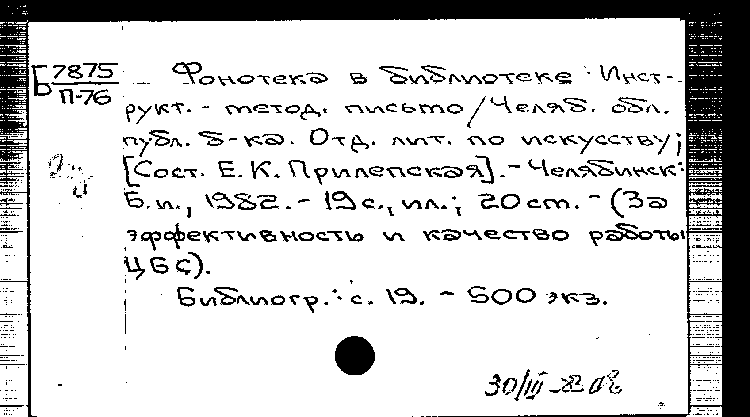 Б 7875 Фонотека в библиотеке : Инст-
П-76 рукт. - метод. письмо / Челяб. обл.
публ. б-ка. Отд. лит. по искусству;
[Сост. Е. К. Прилепская]. - Челябинск:
Б.и., 1982. - 19 с., ил.; 20 cm. - (За
эффективность и качество работы
ЦБС).
Библиогр.: с. 19. - 500 экз.
30/III